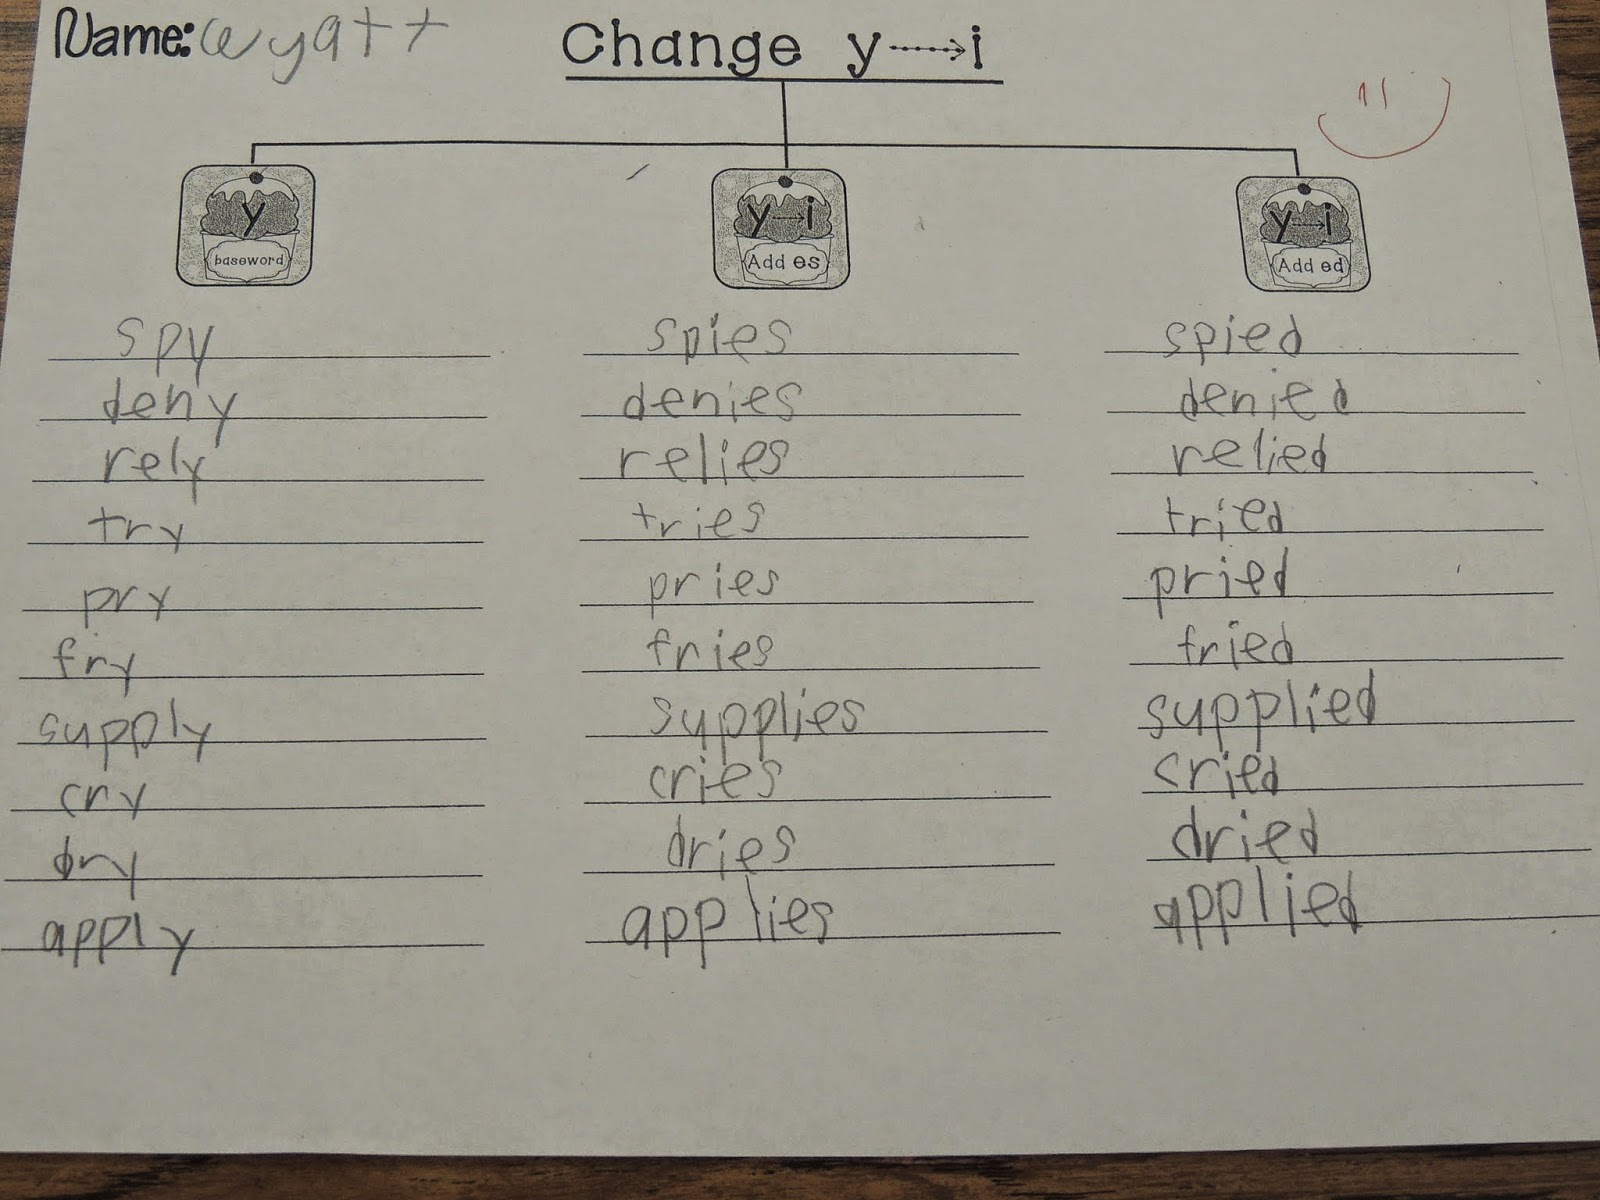 Name: wyatt Change y→i
y y→i y→i
baseword Add es Add ed
spy spies spied
deny denies denied
rely relies relied
try tries tried
pry pries pried
fry fries fried
supply supplies supplied
cry cries cried
dry dries dried
apply applies applied